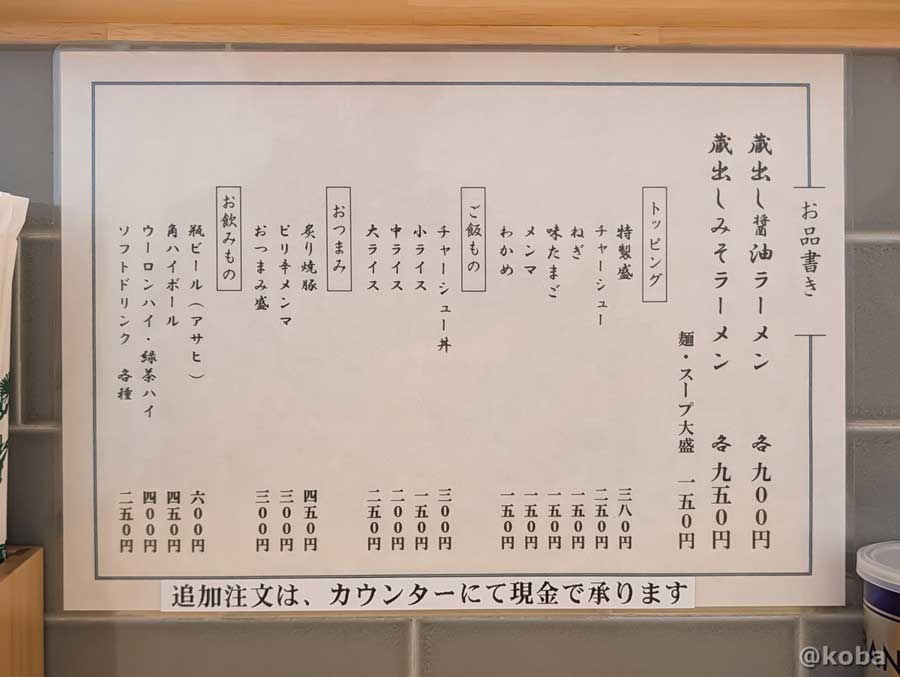 お品書き
蔵出し醤油ラーメン 各九〇〇円
蔵出しみそラーメン 各九五〇円
麺・スープ大盛 一五〇円
トッピング
特製盛 三八〇円
チャーシュー 二五〇円
ねぎ 一五〇円
味たまご 一五〇円
メンマ 一五〇円
わかめ 一五〇円
ご飯もの
チャーシュー丼 三〇〇円
小ライス 一五〇円
中ライス 二〇〇円
大ライス 二五〇円
おつまみ
炙り焼豚 四五〇円
ピリ辛メンマ 三〇〇円
おつまみ盛 三〇〇円
お飲みもの
瓶ビール（アサヒ） 六〇〇円
角ハイボール 四五〇円
ウーロンハイ・緑茶ハイ 四〇〇円
ソフトドリンク 各種 二五〇円
追加注文は、カウンターにて現金で承ります
@koba